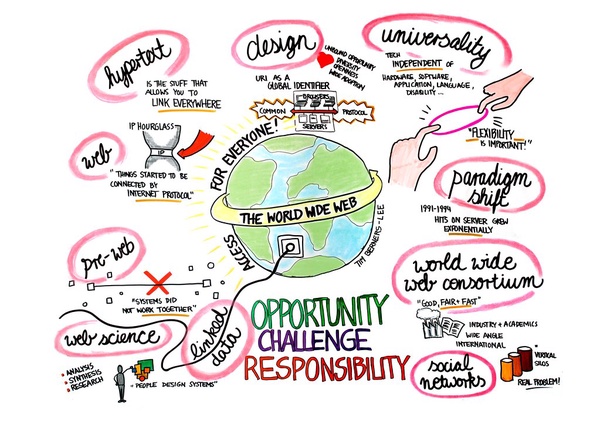 hypertext
IS THE STUFF THAT
ALLOWS YOU TO
LINK EVERYWHERE
design
UNBOUND OPPORTUNITY
DIVERSITY
OPENNESS
WIDE ADOPTION
URI AS A
GLOBAL IDENTIFIER
BROWSERS
COMMON
PROTOCOL
SERVERS
universality
TECH
INDEPENDENT OF
HARDWARE, SOFTWARE,
APPLICATION, LANGUAGE,
DISABILITY...
"FLEXIBILITY
IS IMPORTANT!"
web
IP HOURGLASS
IP
"THINGS STARTED TO BE
CONNECTED BY
INTERNET PROTOCOL"
ACCESS
FOR EVERYONE!
THE WORLD WIDE WEB
TIM BERNERS-LEE
paradigm
shift
1991-1994
HITS ON SERVER GREW
EXPONENTIALLY
pre-web
"SYSTEMS DID
NOT WORK TOGETHER"
world wide
web consortium
"GOOD, FAIR + FAST"
INDUSTRY + ACADEMICS
WIDE ANGLE
INTERNATIONAL
web science
• ANALYSIS
• SYNTHESIS
• RESEARCH
"PEOPLE DESIGN SYSTEMS"
linked
data
OPPORTUNITY
CHALLENGE
RESPONSIBILITY
social
networks
VERTICAL
SILOS
REAL PROBLEM!